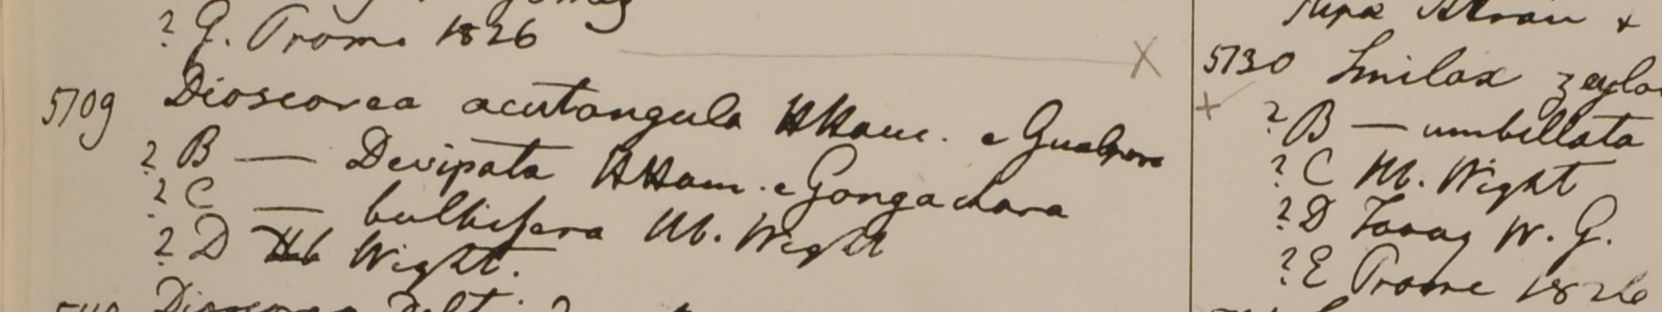 ? G. Prome 1826
5709 Dioscorea acutangula HHam. e Gualpara
? B — Devipata HHam. e Gongachora
? C — bulbifera Hb. Wight
? D Hb Wight.
Dioscorea
5730 Smilax zeyla
? B — umbellata
? C Hb. Wight
? D Tavoy W. G.
? E Prome 1826